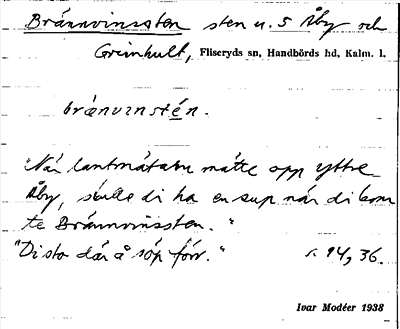 Brännvinssten sten u. S Åby och
Grimhult, Fliseryds sn, Handbörds hd, Kalm. l.
brænvinstén.
"När lantmätaren mätte opp yttre
Åby, skulle di ha en sup när di kom
te Brännvinssten."
"Di sto där å söp förr." s. 94, 36.
Ivar Modéer 1938